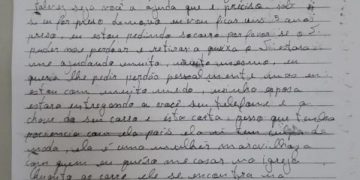 talvez seja você a ajuda que é preciso
se eu for preso demora menos ficar uns 3 anos
preso, eu estou pedindo socorro por favor se o S.
puder nos perdoar e retirar a queixa o Sr estara
me ajudando muito, muito mesmo, eu
queria lhe pedir perdão pessoalmente mas
estou com muito medo, minha esposa
estara entregando a você seu telefone e a
chave do seu carro e esta carta, peço que tenha
paciencia com ela pois ela não tem culpa de
nada, ela é uma mulher maravilhosa
com quem eu quero me casar na igreja
quanto ao carro ele se encontra na